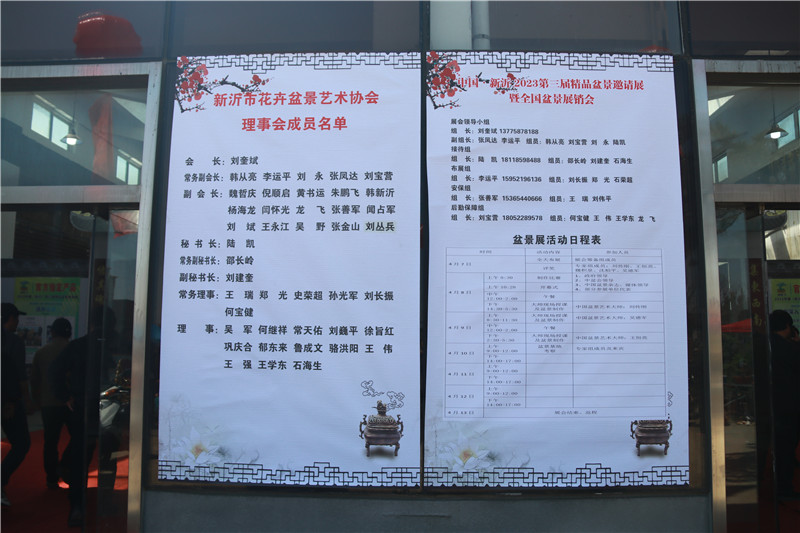 新沂市花卉盆景艺术协会
理事会成员名单
会 长: 刘奎斌
常务副会长: 韩从亮 李运平 刘 永 张凤达 刘宝营
副 会 长: 魏哲庆 倪顺启 黄书运 朱鹏飞 韩新沂
杨海龙 闫怀光 龙 飞 张善军 闻占军
刘 斌 王永江 吴 野 张金山 刘丛兵
秘 书 长: 陆 凯
常务副秘书长: 邵长岭
副秘书长: 刘建奎
常务理事: 王 瑞 郑 光 史荣超 孙光军 刘长振
何宝健
理 事: 吴 军 何继祥 常天佑 刘巍平 徐旨红
巩庆合 郁东来 鲁成文 骆洪阳 王 伟
王 强 王学东 石海生
中国·新沂2023第三届精品盆景邀请展
暨全国盆景展销会
展会领导小组
组 长: 刘奎斌 13775878188
副组长: 张凤达 李运平 组员: 韩从亮 刘宝营 刘 永 陆凯
接待组
组 长: 陆 凯 18118598488 组员: 邵长岭 刘建奎 石海生
布展组
组 长: 李运平 15952196136 组员: 刘长振 郑 光 石荣超
安保组
组 长: 张善军 15365440666 组员: 王 瑞 刘伟平
后勤保障组
组 长: 刘宝营 18052289578 组员: 何宝健 王 伟 王学东 龙 飞
盆景展活动日程表
时间 活动内容
4月7日
评奖
4月8日
开幕式
午餐
4月9日
午餐
4月10日
4月11日
4月12日
4月13日